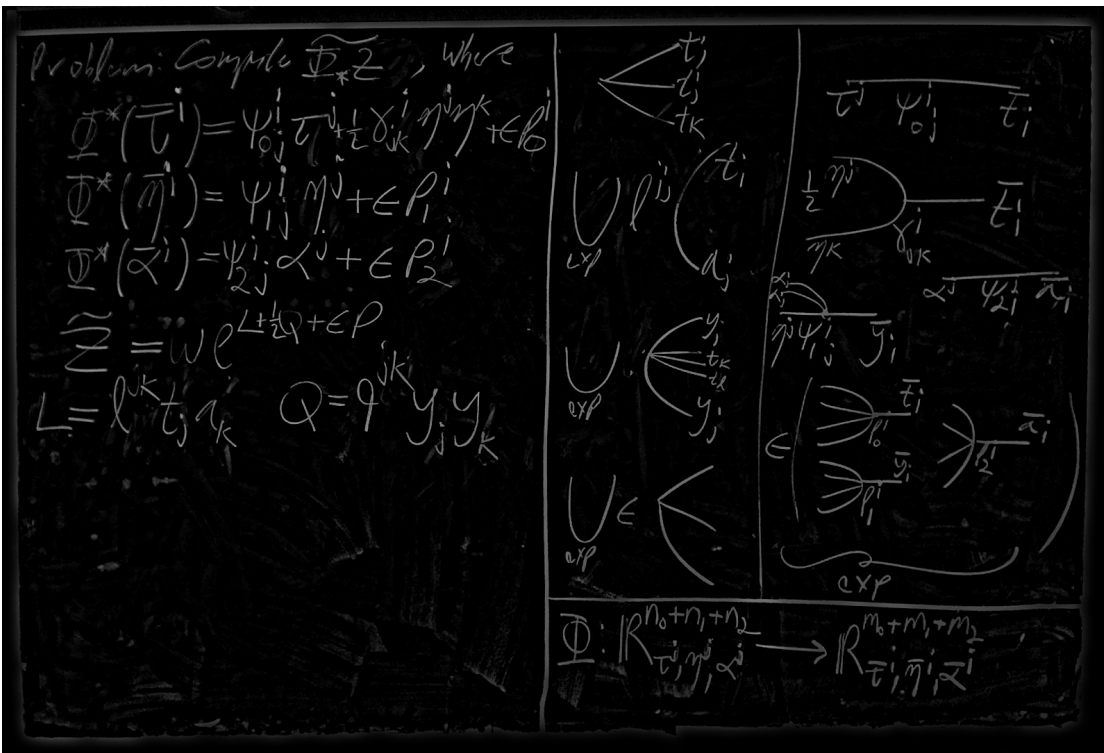 Problem: Compute Φ̃_* Z, where
Φ^*(τ̄^i) = ψ_0{}^i_j τ^j + ½ γ^i_{jk} η^j η^k + ϵP_0^i
Φ^*(η̄^i) = ψ_1{}^i_j η^j + ϵP_1^i
Φ^*(ᾱ^i) = ψ_2{}^i_j α^j + ϵP_2^i
Z̃ = ω e^{L+½Q+ϵP}
L = l^{jk} t_j a_k   Q = q^{jk} y_j y_k
t_i
t_j
t_k
l^{ij} t_i
exp
a_j
y_i
t_k
t_l
exp
y_j
ϵ
exp
τ^j ψ_0{}^i_j t̄_i
½ η^j
t̄_i
η^k γ^i_{jk}
α^j ψ_2{}^i_j ā_i
α^i
α^j
η^j ψ_1{}^i_j ȳ_i
ϵ t̄_i ā_i
P_0^i P_2^i
ȳ_i
P_1^i
exp
Φ: ℝ^{n_0+n_1+n_2}_{τ^j, η^j, α^j} ⟶ ℝ^{m_0+m_1+m_2}_{τ̄^i, η̄^i, ᾱ^i}